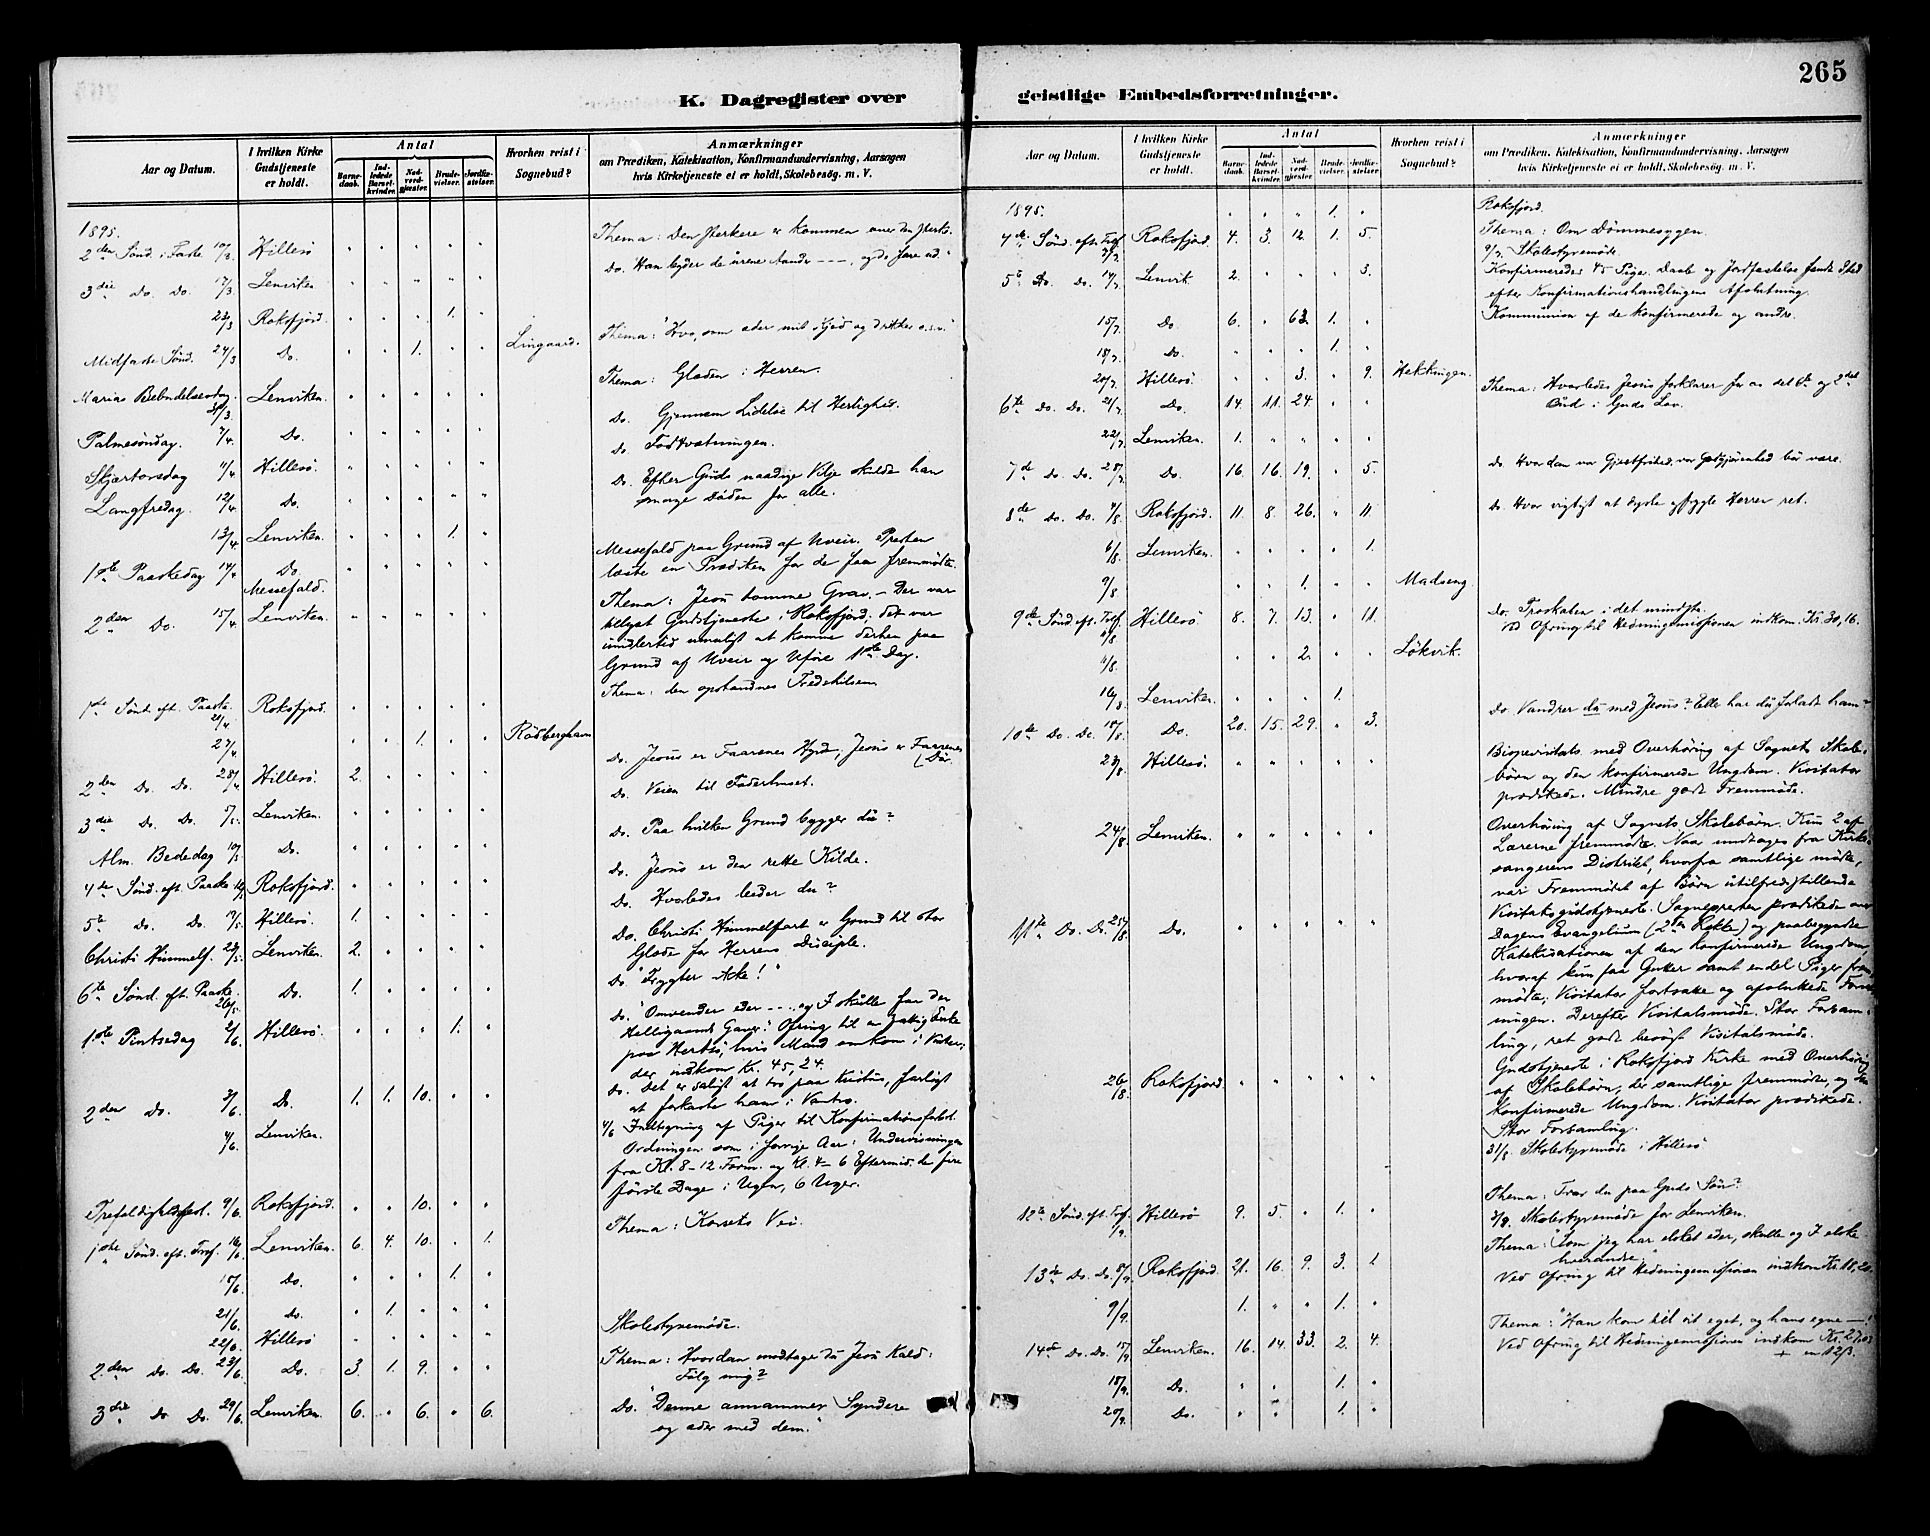 265
K. Dagregister over geistlige Embedsforretninger.
Aar og Datum.
I hvilken Kirke Gudstjeneste er holdt.
Antal
Barnedaab.
Indledede Barselkvinder.
Nadverdgjæster.
Brudevielser.
Jordfæstelser
Hvorhen reist i Sognebud?
Anmærkninger
om Prædiken, Katekisation, Konfirmandundervisning, Aarsagen
hvis Kirketjeneste ei er holdt, Skolebesög. m. V.
1895.
2den Sönd. i Faste 10/3 Hillesö " " " " " Thema: Den sterkere er kommen over den sterke.
3die Do. Do. 17/3 Lenviken " " " " " Do. Han byder de urene Aander ---, og de fare ud."
23/3 Roksfjord. " " " 1. "
Midfaste Sönd. 24/3 Do. " " 1. " " Lingaard. Thema: "Hvo, som æder mit Kjöd og drikker o.s.v."
Marias Bebudelsesdag 31/3. Lenviken. " " " " " Thema: Glæden i Herren.
Palmesöndag. 7/4. Do. " " " " " Do. Gjennem Lidelse til Herlighed.
Skjærtorsdag 11/4 Hillesö. " " " " " Do. Fodtvætningen.
Langfredag. 12/4 Do. " " " " " Do. Efter Guds naadige Vilje skulde han
smage Döden for alle.
13/4. Lenviken. " " " 1. "
1ste Paaskedag 14/4 Do Messefald. Messefald paa Grund af Uveir. Presten
læste en Prædiken for de faa fremmödte.
2den Do. 15/4. Lenviken. " " " " " Thema: Jesu tomme Grav. - Der var
berlyst Gudstjeneste i Roksfjord; det var
imidlertid umuligt at komme derhen paa
Grund af Uveir og Uföre 1ste Dag.
1ste Sönd. eft. Paaske. 21/4. Roksfjord. " " " " " Thema: den opstandnes Fredshilsen
27/4 " " 1. " " Rödberghavn
2den Do. Do. 28/4 Hillesö. 2. " " " " Do. Jesus er Faarenes Hyrde, Jesus er Faarenes Dör.
3die Do. Do. 5/5. Lenviken. " " " " " Do. Veien til Faderhuset.
Alm. Bededag 10/5 Do. " " " " " Do. Paa hvilken Grund bygger du?
4de Sönd. eft. Paaske 12/5 Roksfjord. " " " " " Do. Jesus er den rette Kilde.
5te Do. Do. 19/5 Hillesö. 1. " " " " Do. Hvorledes beder du?
Christi Himmelf. 23/5. Lenviken. 2. " " " " Do. Christi Himmelfart er Grund til stor
Glæde for Herrens Disciple.
6te Sönd. eft. Paaske. 26/5. Do. 1. " " " " Do "Frygter ikke!"
1ste Pintsedag 2/6 Hillesö. " " " 1. " Do. "Omvender eder ---, og I skulle faa den
Helligaands Gave." Ofring til en fattig Enke
paa Hertö, hvis Mand omkom i Vinter;
der indkom Kr. 45,24.
2den Do. 3/6. Do. 1. 1. 10. " " Do. Det er saligt at tro paa Kristus, farligt
at forkaste ham i Vantro.
4/6. Lenviken. 4/6 Indtegning af Piger til Konfirmationsforbed.
Ordningen som i forrige Aar: Undervisningen
fra Kl. 8-12 Form. og Kl. 4-6 Eftermid. de fire
förste Dage i Ugen, 6 Uger.
Trefoldighedsfest. 9/6. Roksfjord. " " 10. " " Thema: Korsets Vei.
1ste Sönd. eft. Tref. 16/6 Lenviken. 6. 4. 10. " 1.
18/6. Do. " " " 1. "
21/6. Do. " 1. " " "
22/6. Hillesö " " " " " Skolestyremöde.
2den Do. Do. 23/6. Do. 3. 1. 9. " " Thema: Hvordan modtager du Jesu Kald:
Fölg mig?
3die Do Do. 29/6. Lenviken. 6. " 6. " 6. Do. "Denne annammer Syndere
og æder med dem."
Aar og Datum.
I hvilken Kirke Gudstjeneste er holdt.
Antal
Barnedaab.
Indledede Barselkvinder.
Nadverdgjæster.
Brudevielser
Jordfæstelser
Hvorhen reist i Sognebud?
Anmærkninger
om Prædiken, Katekisation, Konfirmandundervisning, Aarsagen
hvis Kirketjeneste ei er holdt, Skolebesög. m. V.
1895. " " " 1. " Roksfjord.
4de Sönd. eft. Tref. 7/7. Roksfjord. 4. 3. 12. 1. 5. Thema: Om Dömmesygen.
9/7. Skolestyremöde.
5te Do. Do. 14/7. Lenvik. 2. " " " 3. Konfirmeredes 45 Piger. Daab og Jordfæstelse fandt Sted
efter Konfirmationshandlingens Afslutning.
15/7. Do. 6. " 63. 1. " Kommunion af de konfirmerede og andre.
18/7. Do. " " " 1. "
20/7. Hillesö. " " 3. " 9. Hekkingen.
6te Do. Do. 21/7. Do. 14. 11. 24. " " Thema: Hvorledes Jesus forklarer for os det 1ste og 2det
Bud i Guds Lov.
22/7. Lenviken. 1. " " " "
7de Do. Do. 28/7. Do. 16. 16. 19. " 5. Do. Hvordan vor Gjestfrihed, vor Godgjörenhed bör være.
8de Do. Do. 4/8. Roksfjord. 11. 8. 26. " 11. Do. Hvor vigtigt at dyrke og frygte Herren ret.
6/8. Lenviken. " " " " 1.
9/8 " " 1. " " Madseng.
9de Sönd. eft. Tref. Hillesö. 8. 7. 13. " 11. Do. Troskaben i det mindste.
Ved Ofring til Hedningemissionen indkom. Kr. 30,16.
11/8. " " 2. " " Lökvik.
16/8 Lenviken. " " " 1. "
10de Do. Do. 18/8. Do. 20. 15. 29. " 3. Do. Vandrer du med Jesus? Eller har du forladt ham?
23/8 Hillesö. " " " " " Bispevisitats med Overhöring af Sognets Skole-
börn og den konfirmerede Ungdom. Visitator
prædikede. Mindre godt Fremmöde.
24/8 Lenviken. " " " " " Overhöring af Sognets Skolebörn. Kun 2 af
Lærerne fremmödte. Naar undtages fra Kirke-
sangerens Distrikt, hvorfra samtlige mödte,
var Fremmödet af Börn utilfredsstillende
11te Do. Do. 25/8 Do. " " " " " Visitatsgudstjeneste. Sognepresten prædikede over
Dagens Evangelium (2den Række) og paabegyndte
Katekisationen af den konfirmerede Ungdom,
hvoraf kun faa Gutter samt endel Piger frem-
mödte; Visitator fortsatte og afsluttede Forret-
ningen. Derefter Visitatsmöde. Stor Forsam-
ling, ret godt besögt Visitatsmöde.
26/8 Roksfjord. " " " " " Gudstjeneste i Roksfjord Kirke med Overhöring
af Skolebörn, der samtlige fremmödte, og den
konfirmerede Ungdom. Visitator prædikede.
Stor Forsamling.
31/8. Skolestyremöde i Hillesö
12te Sönd. eft. Tref. 1/9. Hillesö 9. 5. " 1. " Thema: Tror du paa Guds Sön?
7/9. Skolestyremöde for Lenviken.
13de Do. Do. 8/9. Roksfjord. 21. 16. 9. 3. 1 Thema: "Som jeg har elsket eder, skulle og I elske
hverandre."
Ved Ofring til Hedningemissionen indkom Kr. 18,20.
9/9. 1. " " 1. "
14de Do. Do. 15/9. Lenviken. 16. 14. 33. 2. 4. Thema: "Han kom til sit eget, og hans egne —!
Ved Ofring til Hedningemissionen indkom Kr. 27,03
18/9. Do. " " 1. "
20/9. Do. " " 1. "